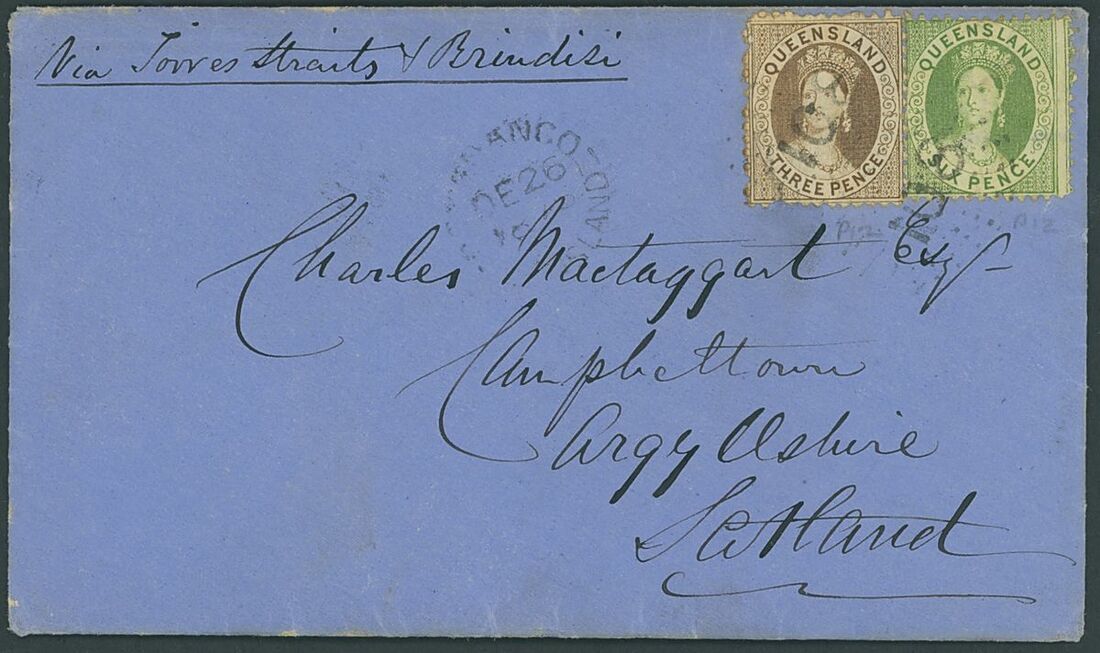 Via Torres Straits & Brindisi
QUEENSLAND
THREE PENCE
QUEENSLAND
SIX PENCE
DE 26
P12
P12
Charles Mactaggart Esqr
Campbeltown
Argyllshire
Scotland